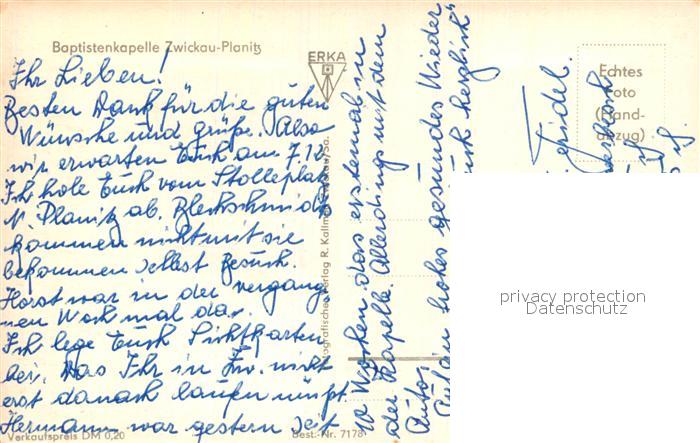 Baptistenkapelle Zwickau-Planitz
ERKA
Echtes
Foto
(Hand-
abzug)
Ihr Lieben!
Besten Dank für die guten
Wünsche und Grüße. Also
wir erwarten Euch am 7.12.
Ich hole Euch vom Stolleplatz
N. Planitz ab. Blechschmidts
kommen nicht mit sie
bekommen selbst Besuch.
Horst war in der vergang-
nen Woche mal da.
Ich lege Euch Sichtkarten
bei. Das Ihr in Zw. nicht
erst danach laufen müßt.
Hermann war gestern seit
10 Wochen das erstemal in
der Kapelle. Allerdings mit dem
Auto.
Auf ein frohes gesundes Wieder
Euch herzlich
Friedel.
Fotografischer Verlag R. Kallm Zwickau/Sa.
Verkaufspreis DM 0,20
Best.-Nr. 7178
privacy protection
Datenschutz